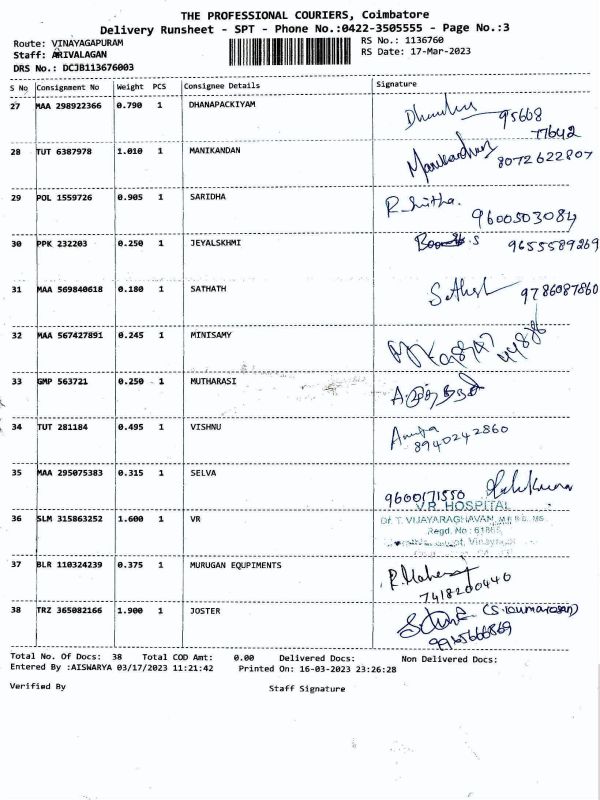 THE PROFESSIONAL COURIERS, Coimbatore
Delivery Runsheet - SPT - Phone No.:0422-3505555 - Page No.:3
Route: VINAYAGAPURAM
RS No.: 1136760
Staff: ARIVALAGAN
RS Date: 17-Mar-2023
DRS No.: DCJB113676003
S No Consignment No Weight PCS Consignee Details Signature
27 MAA 298922366 0.790 1 DHANAPACKIYAM 95668
77642
28 TUT 6387978 1.010 1 MANIKANDAN Manikandan 8072622807
29 POL 1559726 0.905 1 SARIDHA 9600503084
30 PPK 232203 0.250 1 JEYALSKHMI 9655589269
31 MAA 569840618 0.180 1 SATHATH Sathish 9786087860
32 MAA 567427891 0.245 1 MINISAMY
33 GMP 563721 0.250 1 MUTHARASI
34 TUT 281184 0.495 1 VISHNU
8940242860
35 MAA 295075383 0.315 1 SELVA 9600171550
V.R. HOSPITAL
36 SLM 315863252 1.600 1 VR Dr. T. VIJAYARAGHAVAN, M.B.B.S., MS
Regd. No : 61865
37 BLR 110324239 0.375 1 MURUGAN EQUPIMENTS
7418200440
38 TRZ 365082166 1.900 1 JOSTER (S. Kumarasan)
Total No. Of Docs: 38 Total COD Amt: 0.00 Delivered Docs: Non Delivered Docs:
Entered By :AISWARYA 03/17/2023 11:21:42 Printed On: 16-03-2023 23:26:28
Verified By Staff Signature